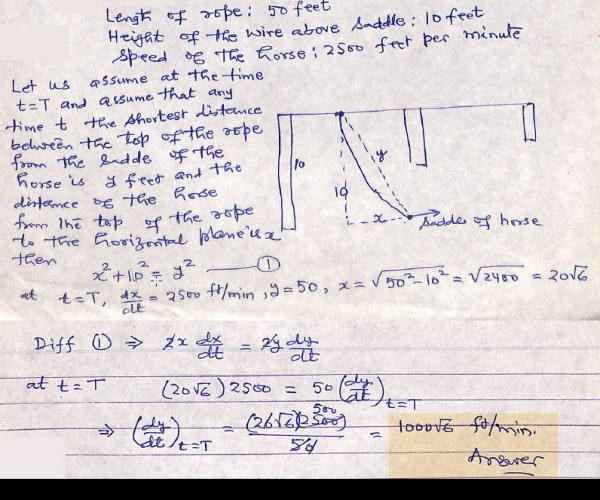 Length of rope: 50 feet
Height of the wire above saddle: 10 feet
Speed of the horse: 2500 feet per minute
Let us assume at the time
t=T and assume that any
time t the shortest distance
between the top of the rope
from the saddle of the
horse is y feet and the
distance of the horse
from the top of the rope
to the horizontal plane is x
then
10
10
y
x
saddle of horse
x² + 10² = y² ——— ①
at t=T, dx/dt = 2500 ft/min, y=50, x = √(50²-10²) = √2400 = 20√6
Diff ① ⇒ 2x dx/dt = 2y dy/dt
at t=T (20√6) 2500 = 50 (dy/dt)t=T
⇒ (dy/dt)t=T = (20√6)(2500)/50 = 1000√6 ft/min.
500
Answer